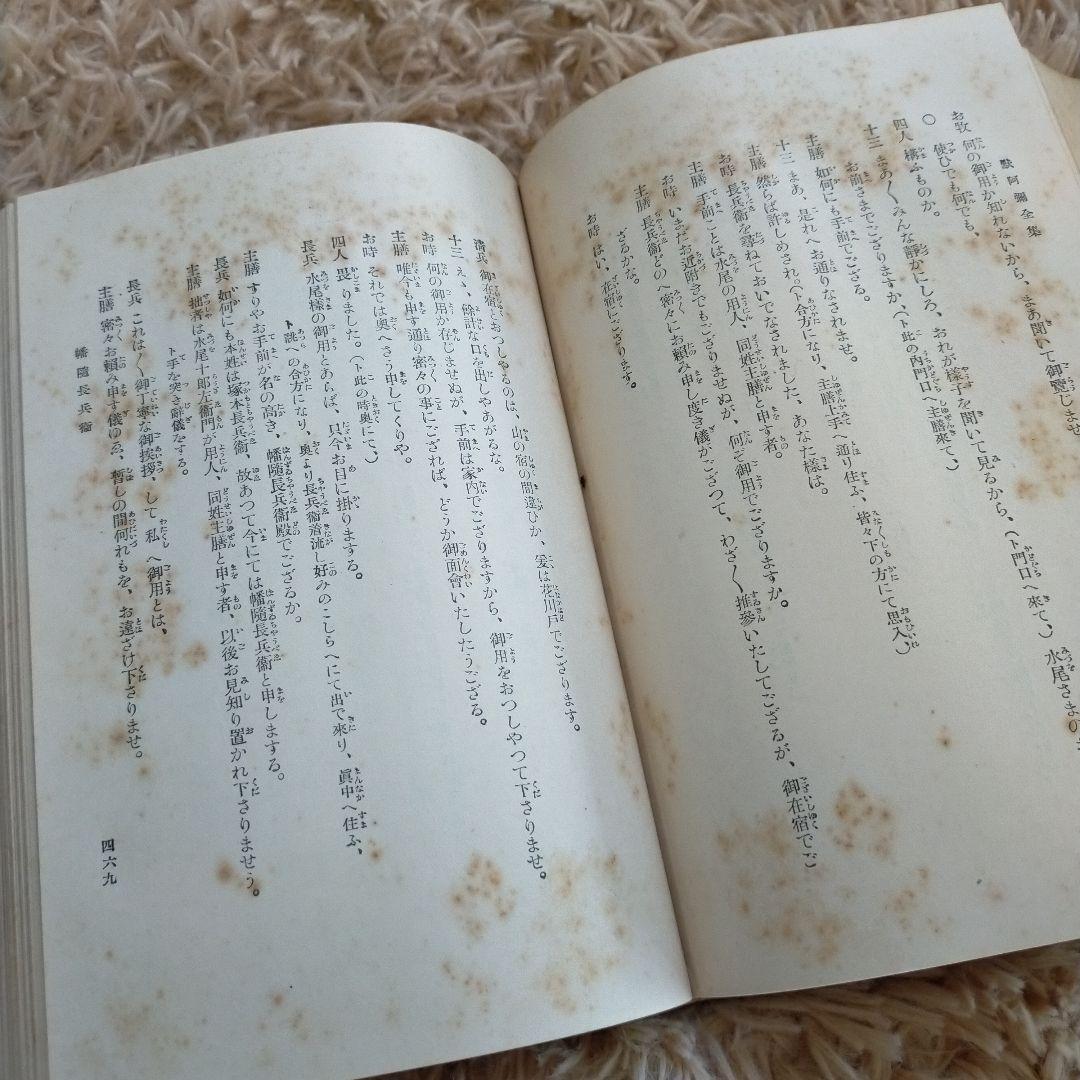 默阿彌全集
お牧 何の御用か知れないから、まあ聞いて御覽じませ
○ 使ひでも何でも、
四人 構ふものか。
十三 まあ〳〵みんな靜かにしろ、おれが樣子を聞いて見るから、(ト門口へ來て、) 水尾さまの
お前さまでござりますか、(ト此の內門口へ主膳來て、)
主膳 如何にも手前でござる。
十三 まあ、是れへお通りなされませ。
主膳 然らば許しめされ。(ト合方になり、主膳上手へ通り住ふ、皆々下の方にて思入、)
お時 長兵衞を尋ねておいでなされました、あなた樣は。
主膳 手前ことは水尾の用人、同姓主膳と申す者。
お時 いまだお近附きでもござりませぬが、何ぞ御用でござりますか。
主膳 長兵衞どのへ密々にお賴み申し度き儀がござつて、わざ〳〵推參いたしてござるが、御在宿でご
ざるかな。
お時 はい、在宿にござります。
濟兵 御在宿とおつしやるのは、山の宿の間違ひか、爰は花川戶でござります。
十三 えゝ、餘計な口を出しやあがるな。
お時 何の御用か存じませぬが、手前は家內でござりますから、御用をおつしやつて下さりませ。
主膳 唯今も申す通り密々の事にござれば、どうか御面會いたしたうござる。
お時 それでは奧へさう申してくりや。
四人 畏りました。(ト此の時奧にて、)
長兵 水尾樣の御用とあらば、只今お目に掛りまする。
ト誂への合方になり、奧より長兵衞着流し好みのこしらへにて出で來り、眞中へ住ふ、
主膳 すりやお手前が名の高き、幡隨長兵衞殿でござるか。
長兵 如何にも本姓は塚本長兵衞、故あつて今にては幡隨長兵衞と申しまする。
主膳 拙者は水尾十郞左衞門が用人、同姓主膳と申す者、以後お見知り置かれ下さりませう。
ト手を突き辭儀をする。
長兵 これは〳〵御丁寧な御挨拶、して私へ御用とは、
主膳 密々お賴み申す儀ゆゑ、暫しの間何れもを、お遠ざけ下さりませ。
幡隨長兵衞
四六九